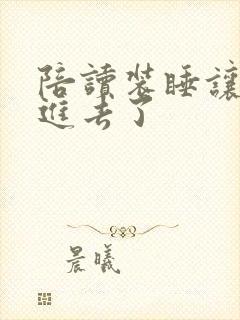 陪讀裝睡讓
進去了
晨曦